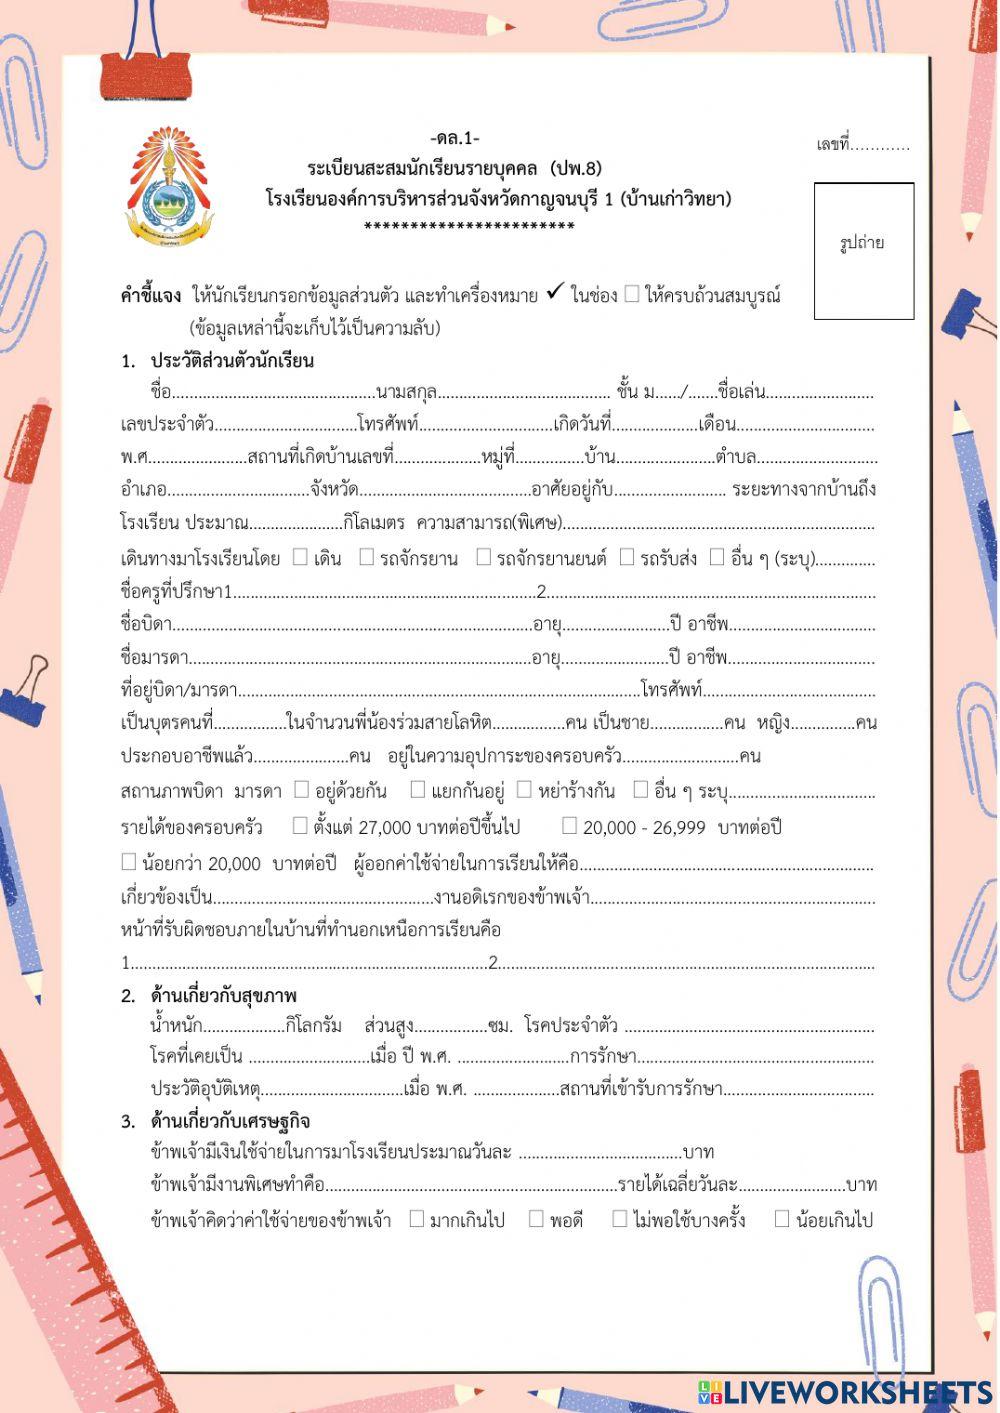 -ดล.1-
เลขที่............
ระเบียนสะสมนักเรียนรายบุคคล (ปพ.8)
โรงเรียนองค์การบริหารส่วนจังหวัดกาญจนบุรี 1 (บ้านเก่าวิทยา)
***********************
รูปถ่าย
คำชี้แจง ให้นักเรียนกรอกข้อมูลส่วนตัว และทำเครื่องหมาย ✓ ในช่อง □ ให้ครบถ้วนสมบูรณ์
(ข้อมูลเหล่านี้จะเก็บไว้เป็นความลับ)
1. ประวัติส่วนตัวนักเรียน
ชื่อ...............................................นามสกุล........................................ ชั้น ม....../.......ชื่อเล่น.........................
เลขประจำตัว.................................โทรศัพท์...............................เกิดวันที่....................เดือน................................
พ.ศ.......................สถานที่เกิดบ้านเลขที่....................หมู่ที่................บ้าน.......................ตำบล............................
อำเภอ.................................จังหวัด........................................อาศัยอยู่กับ.......................... ระยะทางจากบ้านถึง
โรงเรียน ประมาณ......................กิโลเมตร ความสามารถ(พิเศษ)........................................................................
เดินทางมาโรงเรียนโดย □ เดิน □ รถจักรยาน □ รถจักรยานยนต์ □ รถรับส่ง □ อื่น ๆ (ระบุ)..............
ชื่อครูที่ปรึกษา1.......................................................................2............................................................................
ชื่อบิดา...................................................................................อายุ.........................ปี อาชีพ..................................
ชื่อมารดา...............................................................................อายุ.........................ปี อาชีพ..................................
ที่อยู่บิดา/มารดา.............................................................................................โทรศัพท์........................................
เป็นบุตรคนที่.................ในจำนวนพี่น้องร่วมสายโลหิต.................คน เป็นชาย.................คน หญิง...............คน
ประกอบอาชีพแล้ว......................คน อยู่ในความอุปการะของครอบครัว...........................คน
สถานภาพบิดา มารดา □ อยู่ด้วยกัน □ แยกกันอยู่ □ หย่าร้างกัน □ อื่น ๆ ระบุ..................................
รายได้ของครอบครัว □ ตั้งแต่ 27,000 บาทต่อปีขึ้นไป □ 20,000 - 26,999 บาทต่อปี
□ น้อยกว่า 20,000 บาทต่อปี ผู้ออกค่าใช้จ่ายในการเรียนให้คือ....................................................................
เกี่ยวข้องเป็น...................................................งานอดิเรกของข้าพเจ้า..................................................................
หน้าที่รับผิดชอบภายในบ้านที่ทำนอกเหนือการเรียนคือ
1...................................................................................2.......................................................................................
2. ด้านเกี่ยวกับสุขภาพ
น้ำหนัก...................กิโลกรัม ส่วนสูง.................ซม. โรคประจำตัว ..........................................................
โรคที่เคยเป็น ............................เมื่อ ปี พ.ศ. ..........................การรักษา.......................................................
ประวัติอุบัติเหตุ.................................เมื่อ พ.ศ. ....................สถานที่เข้ารับการรักษา...................................
3. ด้านเกี่ยวกับเศรษฐกิจ
ข้าพเจ้ามีเงินใช้จ่ายในการมาโรงเรียนประมาณวันละ ......................................บาท
ข้าพเจ้ามีงานพิเศษทำคือ....................................................................รายได้เฉลี่ยวันละ.........................บาท
ข้าพเจ้าคิดว่าค่าใช้จ่ายของข้าพเจ้า □ มากเกินไป □ พอดี □ ไม่พอใช้บางครั้ง □ น้อยเกินไป
LIVE LIVEWORKSHEETS